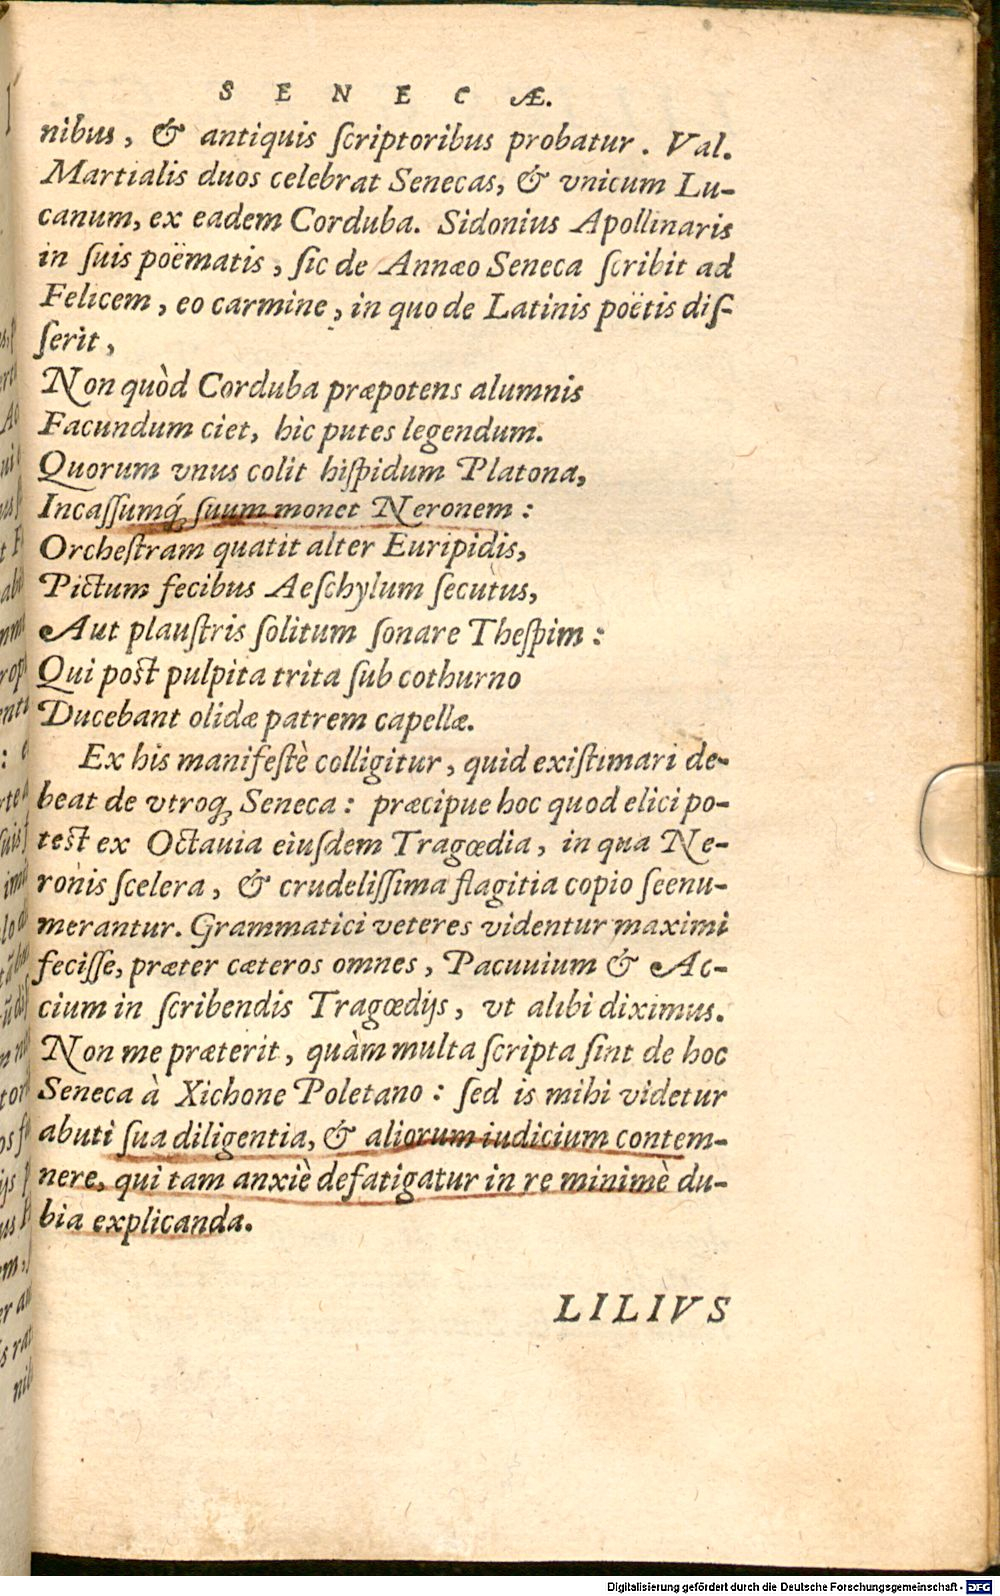 S E N E C Æ.
nibus, & antiquis ſcriptoribus probatur. Val.
Martialis duos celebrat Senecas, & vnicum Lu-
canum, ex eadem Corduba. Sidonius Apollinaris
in ſuis poëmatis, ſic de Annæo Seneca ſcribit ad
Felicem, eo carmine, in quo de Latinis poëtis diſ-
ſerit,
Non quòd Corduba præpotens alumnis
Facundum ciet, hic putes legendum.
Quorum vnus colit hiſpidum Platona,
Incaſſumq́; ſuum monet Neronem:
Orcheſtram quatit alter Euripidis,
Pictum fecibus Aeſchylum ſecutus,
Aut plauſtris ſolitum ſonare Theſpim:
Qui poſt pulpita trita ſub cothurno
Ducebant olidæ patrem capellæ.
Ex his manifeſtè colligitur, quid exiſtimari de-
beat de vtroq; Seneca: præcipue hoc quod elici po-
teſt ex Octauia eiuſdem Tragœdia, in qua Ne-
ronis ſcelera, & crudeliſſima flagitia copio ſeenu-
merantur. Grammatici veteres videntur maximi
feciſſe, præter cæteros omnes, Pacuuium & Ac-
cium in ſcribendis Tragœdijs, vt alibi diximus.
Non me præterit, quàm multa ſcripta ſint de hoc
Seneca à Xichone Poletano: ſed is mihi videtur
abuti ſua diligentia, & aliorum iudicium contem-
nere, qui tam anxiè defatigatur in re minimè du-
bia explicanda.
LILIVS
Digitalisierung gefördert durch die Deutsche Forschungsgemeinschaft - DFG